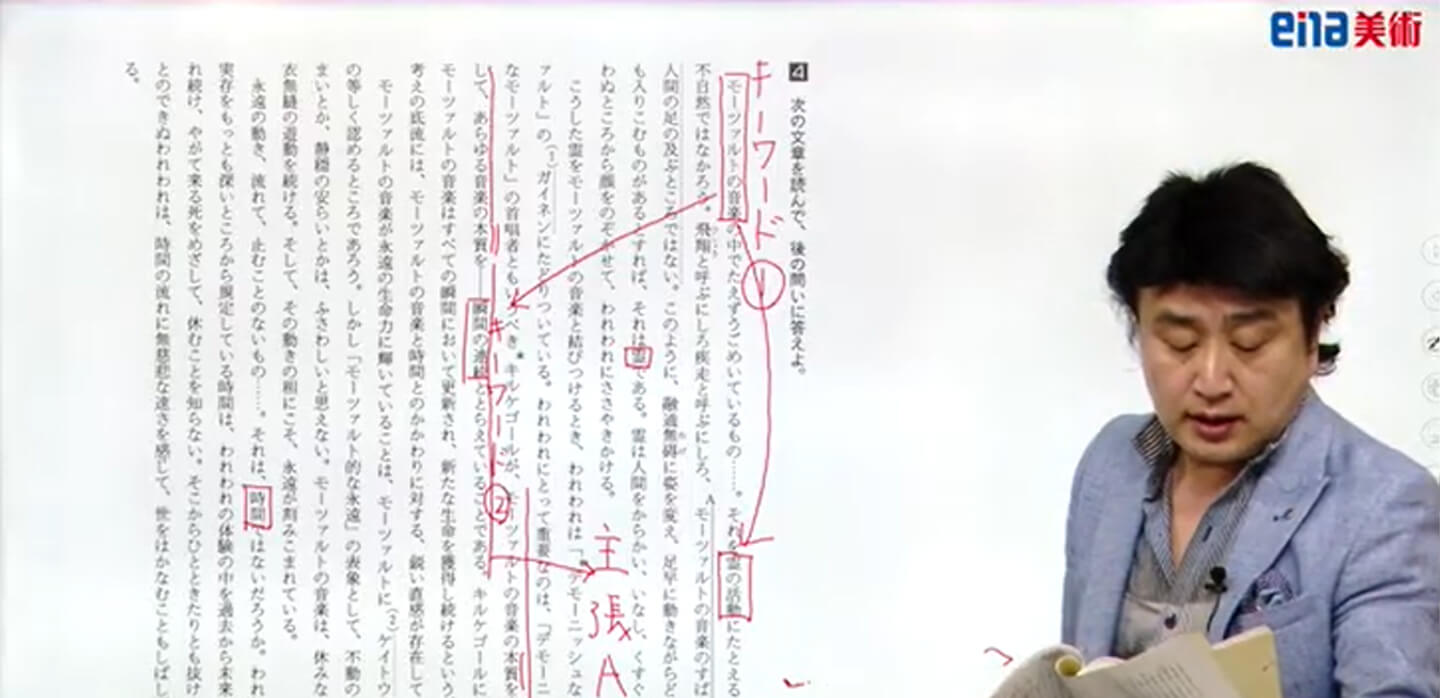 ena美術
4 次の文章を読んで、後の問いに答えよ。
キーワード①
モーツァルトの音楽の中でたえずうごめいているもの……。それを霊の活動にたとえる
不自然ではなかろう。飛翔と呼ぶにしろ疾走と呼ぶにしろ、Aモーツァルトの音楽のすば
人間の足の及ぶところではない。このように、融通無碍に姿を変え、足早に動きながらど
も入りこむものがあるとすれば、それは霊である。霊は人間をからかい、いなし、くすぐ
わぬところから顔をのぞかせて、われわれにささやきかける。
こうした霊をモーツァルトの音楽と結びつけるとき、われわれは「デモーニッシュな
ァルト」の(1)ガイネンにたどりついている。われわれにとって重要なのは、「デモーニ
なモーツァルト」の首唱者ともいうべき*キルケゴールが、モーツァルトの音楽の本質を
して、あらゆる音楽の本質を――瞬間の連続ととらえていることである。キルケゴールに
キーワード②
主張A
モーツァルトの音楽はすべての瞬間において更新され、新たな生命を獲得し続けるという
考えの底流には、モーツァルトの音楽と時間とのかかわりに対する、鋭い直感が存在して
モーツァルトの音楽が永遠の生命力に輝いていることは、モーツァルトに(2)ケイトウ
の等しく認めるところであろう。しかし「モーツァルト的な永遠」の表象として、不動の
まいとか、静穏の安らいとかは、ふさわしいと思えない。モーツァルトの音楽は、休みな
衣無縫の遊動を続ける。そして、その動きの相にこそ、永遠が刻みこまれている。
永遠の動き、流れて、止むことのないもの……。それは、時間ではないだろうか。われ
実存をもっとも深いところから規定している時間は、われわれの体験の中を過去から未来
れ続け、やがて来る死をめざして、休むことを知らない。そこからひとときたりとも抜け
とのできぬわれわれは、時間の流れに無慈悲な速さを感じて、世をはかなむこともしばし
る。